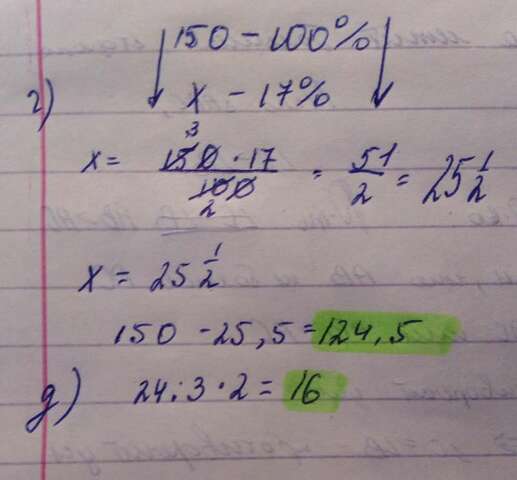 150 - 100%
г) x - 17%
x = 150 · 17 / 100 = 51/2 = 25 1/2
3
2
x = 25 1/2
150 - 25,5 = 124,5
д) 24 : 3 · 2 = 16